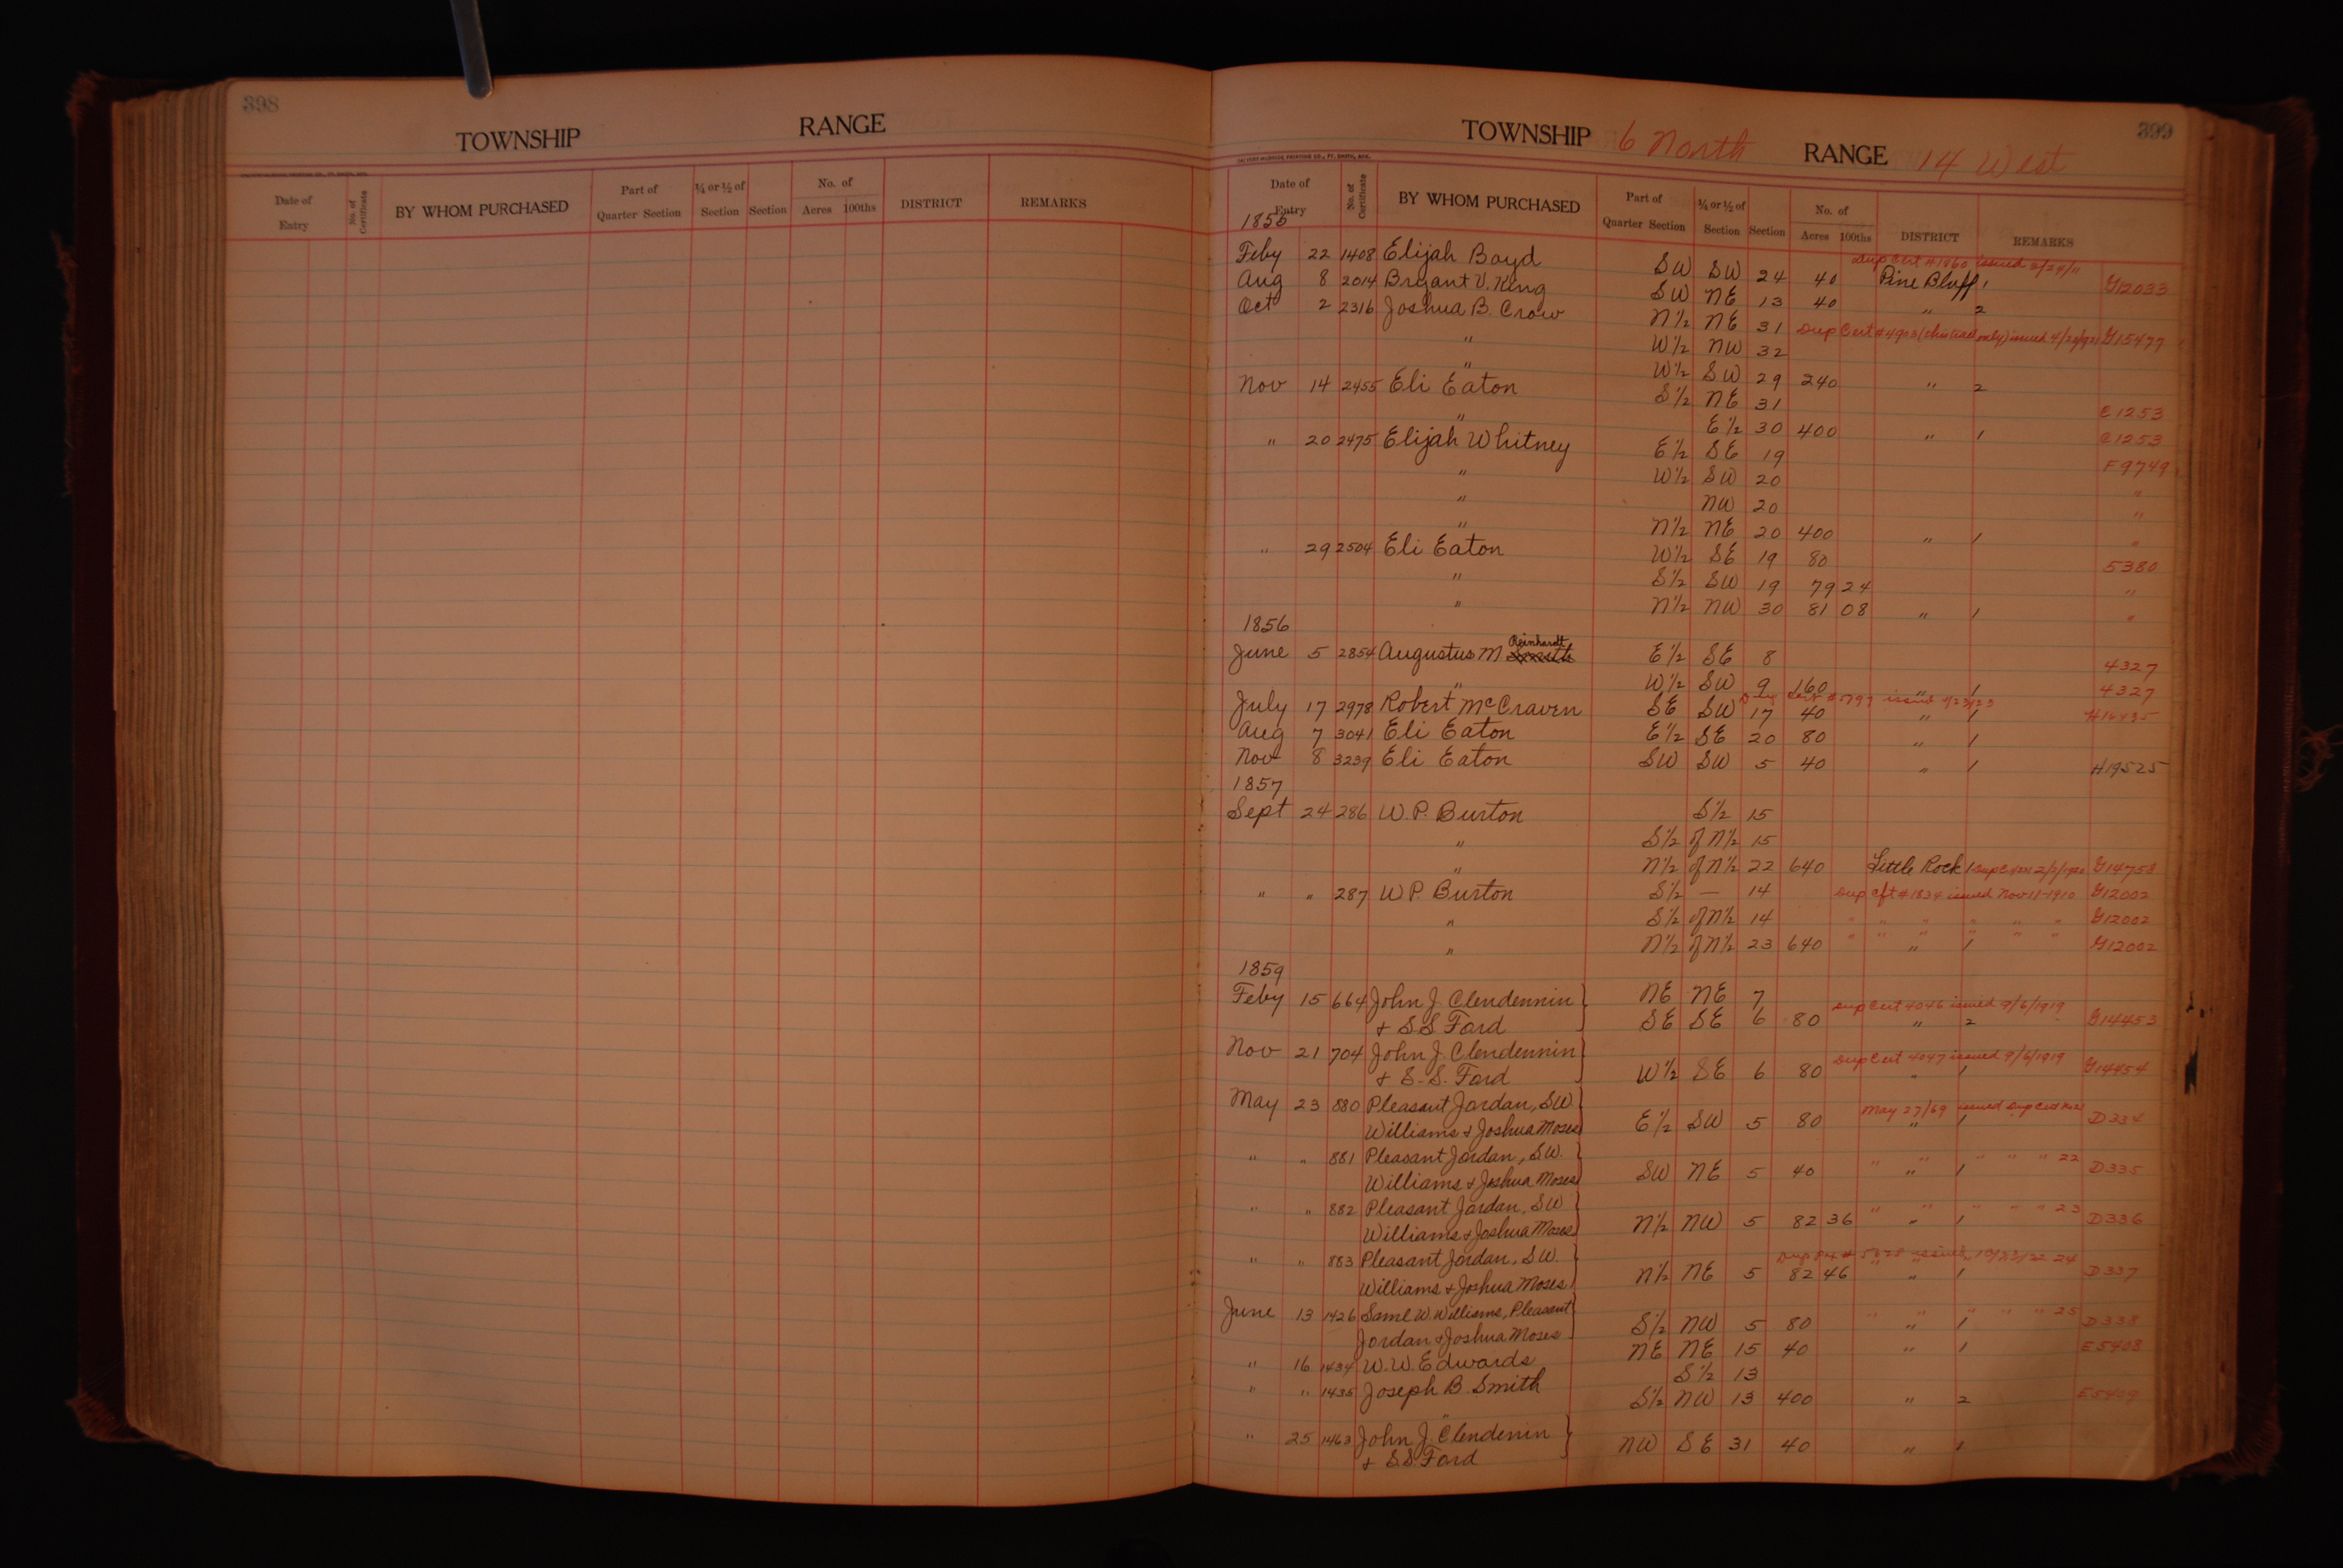 398
TOWNSHIP RANGE
Date of Entry No. of Certificate BY WHOM PURCHASED Part of Quarter Section ¼ or ½ of Section Section No. of Acres 100ths DISTRICT REMARKS
399
TOWNSHIP 6 North RANGE 14 West
CALVERT-McBRIDE PRINTING CO., FT. SMITH, ARK.
Date of Entry No. of Certificate BY WHOM PURCHASED Part of Quarter Section ¼ or ½ of Section Section No. of Acres 100ths DISTRICT REMARKS
1855
Dup Cert #1860 issued 2/24/11
Feby 22 1408 Elijah Boyd SW SW 24 40 Pine Bluff 1 G12033
Aug 8 2014 Bryant V. King SW NE 13 40 " 2
Oct 2 2316 Joshua B. Crow N½ NE 31 Dup Cert #4903 only) issued G15477
" W½ NW 32
" W½ SW 29 240 " 2
Nov 14 2455 Eli Eaton S½ NE 31 C1253
" E½ 30 400 " 1 C1253
" 20 2475 Elijah Whitney E½ SE 19 F9749
" W½ SW 20 "
" NW 20 "
" N½ NE 20 400 " 1 "
" 29 2504 Eli Eaton W½ SE 19 80 5380
" S½ SW 19 79 24 "
" N½ NW 30 81 08 " 1 "
1856
Reinhardt
June 5 2854 Augustus M Smith E½ SE 8 4327
" W½ SW 9 160 " 1 4327
July 17 2978 Robert McCraven SE SW 17 40 " 1
Aug 7 3041 Eli Eaton E½ SE 20 80 " 1
Nov 8 3239 Eli Eaton SW SW 5 40 " 1 H19525
1857
Sept 24 286 W. P. Burton S½ 15
" S½ of N½ 15
" N½ of N½ 22 640 Little Rock 1 G14758
" " 287 W P. Burton S½ — 14 Dup Cft #1834 issued Nov 11-1910 G12002
" S½ of N½ 14 " " " " " " G12002
" N½ of N½ 23 640 " " " " " " " 1 G12002
1859
Feby 15 664 John J. Clendennin } NE NE 7 Dup Cert 4046 issued 9/6/1919
& S S Ford SE SE 6 80 " 2 G14453
Nov 21 704 John J. Clendennin } Dup Cert 4047 issued 9/6/1919
& S. S. Ford W½ SE 6 80 " 1 G14454
May 23 880 Pleasant Jordan, SW. } May 27/69 issued Dup Cert
Williams & Joshua Moses E½ SW 5 80 " 1 D334
" " 881 Pleasant Jordan, SW. } " " " " " 22
Williams & Joshua Moses SW NE 5 40 " 1 D335
" " 882 Pleasant Jordan, SW } " " " " " 23
Williams & Joshua Moses N½ NW 5 82 36 " 1 D336
" " 883 Pleasant Jordan, SW. } issued 24
Williams & Joshua Moses N½ NE 5 82 46 " 1 D337
June 13 1426 Saml W. Williams, Pleasant } " " " " " 25
Jordan & Joshua Moses S½ NW 5 80 " 1 D338
" 16 1434 W. W. Edwards NE NE 15 40 " 1 E5408
" " 1435 Joseph B. Smith S½ 13
" S½ NW 13 400 " 2 E5409
" 25 1463 John J. Clendenin } NW SE 31 40 " 1
& S.S. Ford